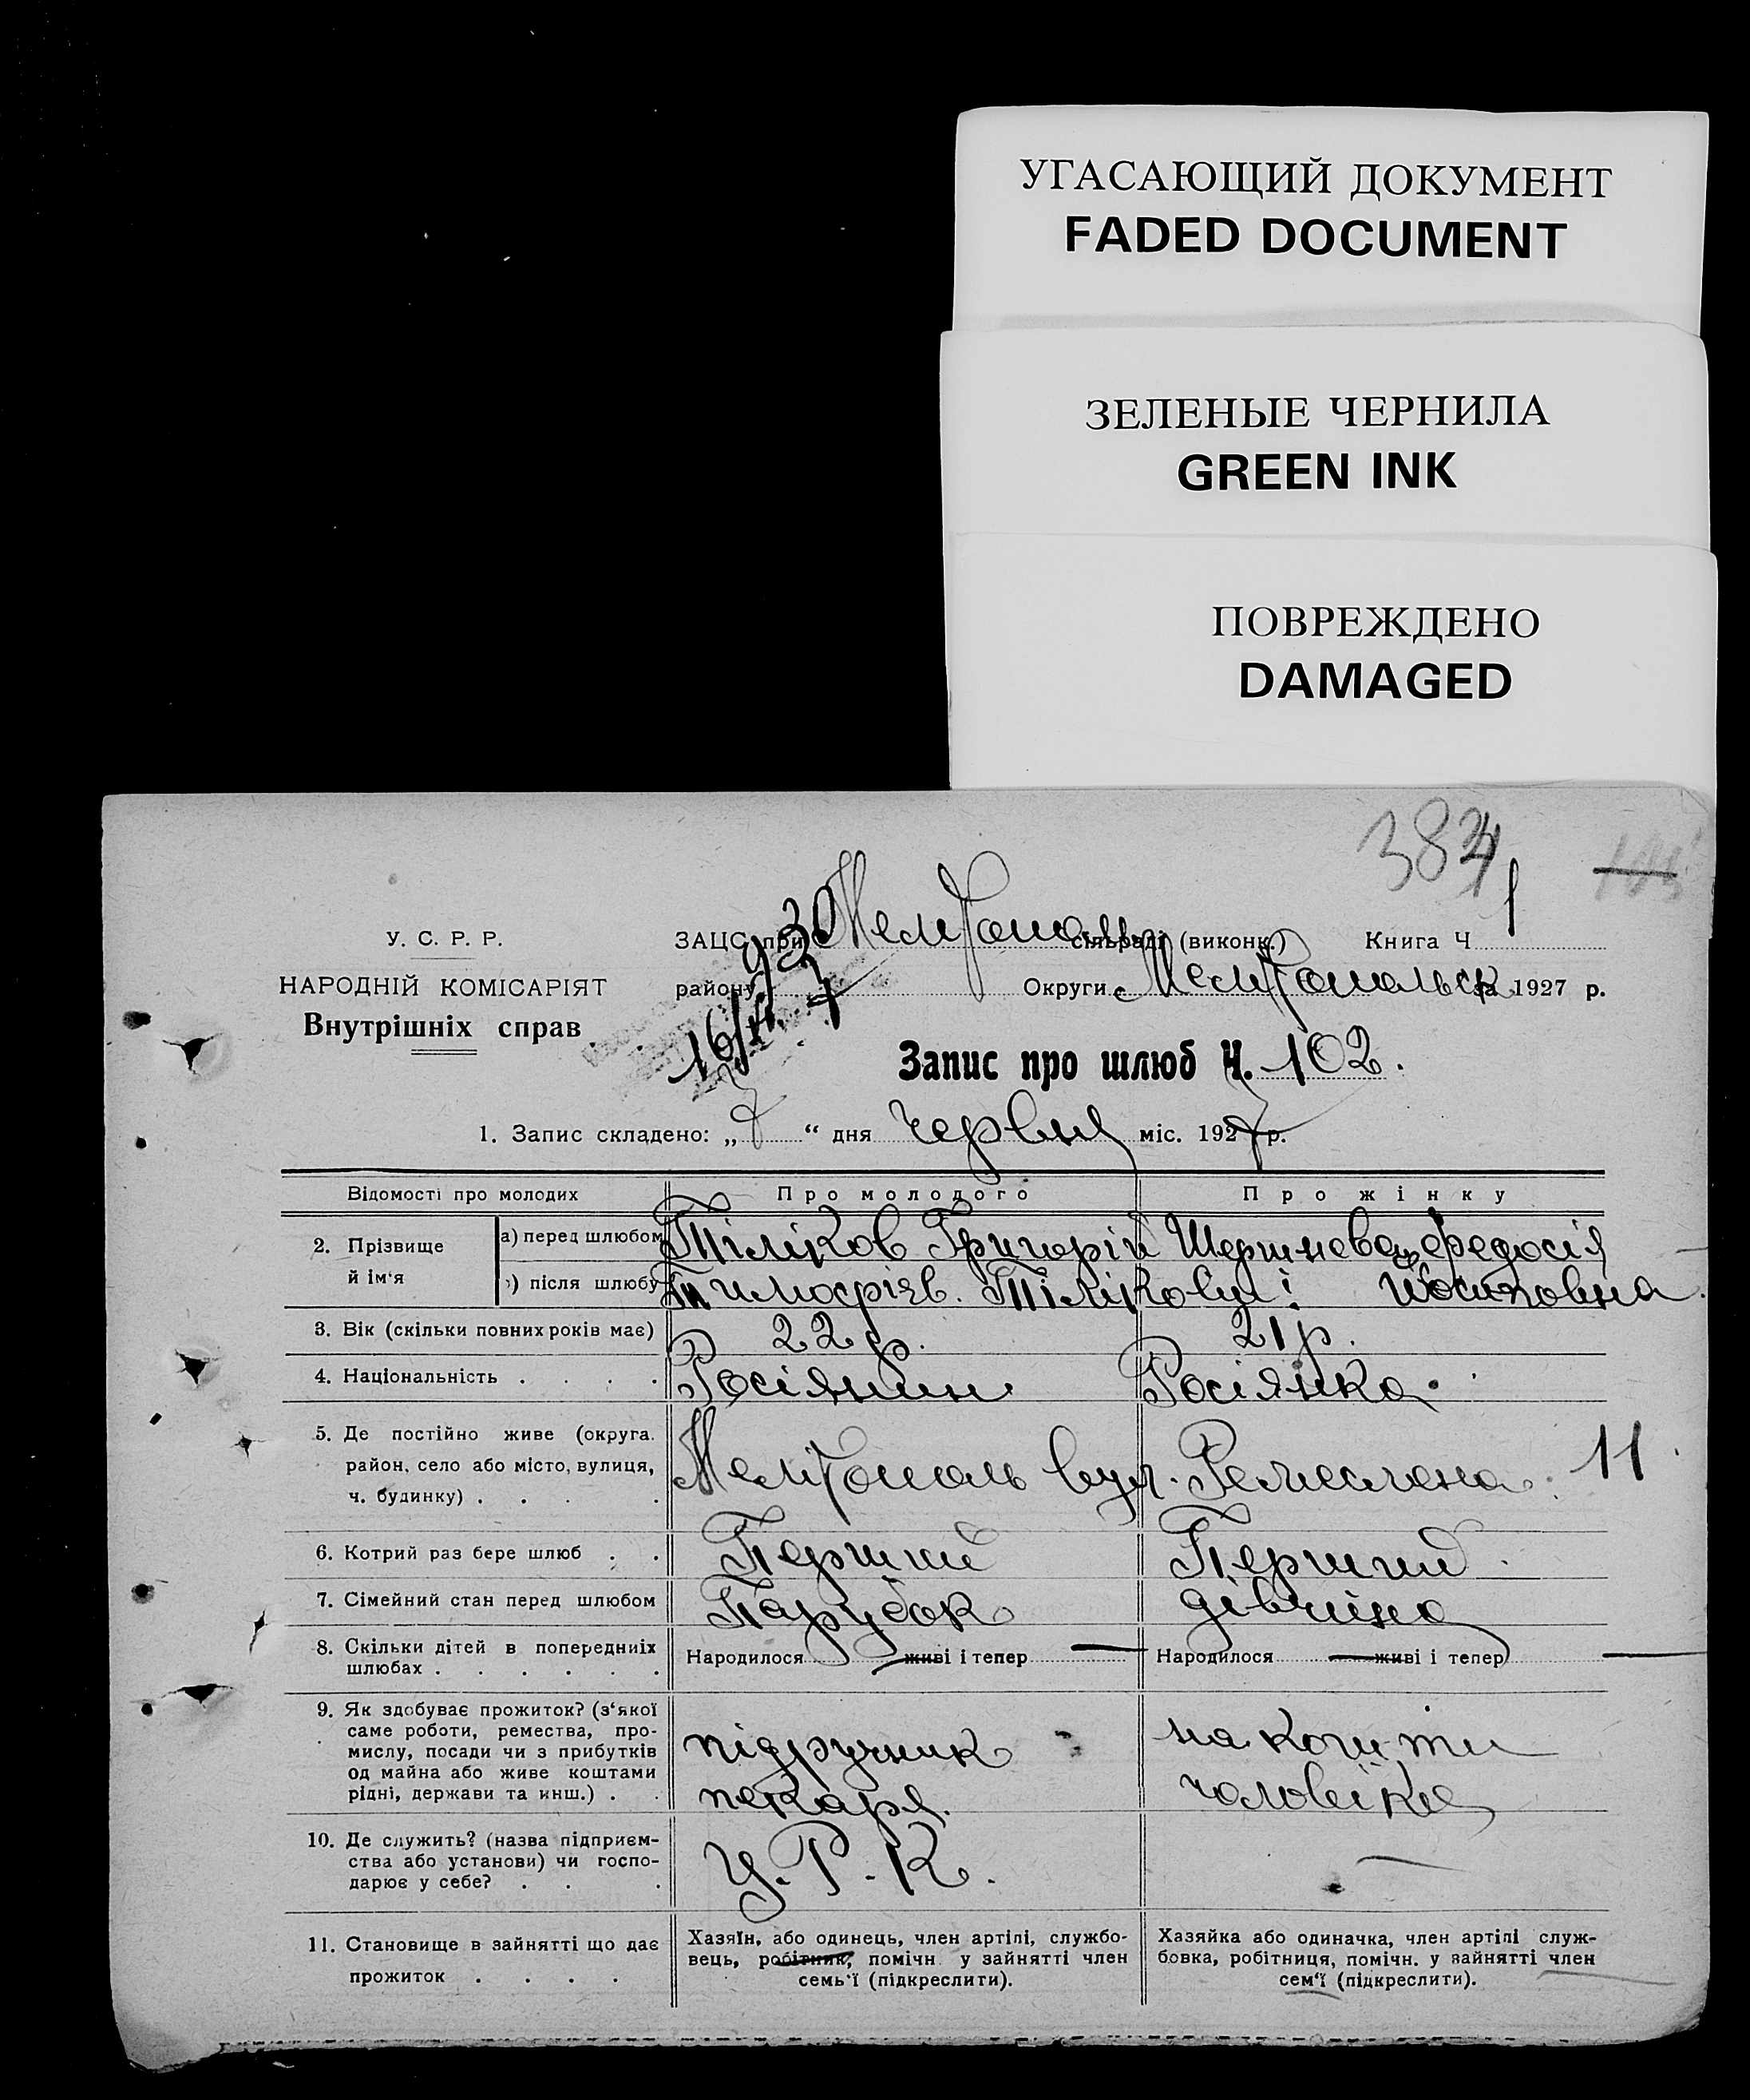 УГАСАЮЩИЙ ДОКУМЕНТ
FADED DOCUMENT
ЗЕЛЕНЫЕ ЧЕРНИЛА
GREEN INK
ПОВРЕЖДЕНО
DAMAGED
384
1
У. С. Р. Р.
НАРОДНІЙ КОМІСАРІЯТ
Внутрішніх справ
ЗАЦС при Мелітополь сільраді (виконк.) Книга Ч
району Округи Мелітопольськ за 1927 р.
Запис про шлюб Ч. 102.
1. Запис складено: „ 7 “ дня червня міс. 1927 р.
Відомості про молодих Про молодого Про жінку
2. Прізвище й ім‘я
а) перед шлюбом Тіліков Григорій Шершнева Федосія
б) після шлюбу Тимофіїв. Тілікови! Йосиповна
3. Вік (скільки повних років має) 22 р. 21 р.
4. Національність . . . . Росіянин Росіянка.
5. Де постійно живе (округа. район, село або місто, вулиця, ч. будинку) . . . . Мелітополь вул. Ремеслена. 11
6. Котрий раз бере шлюб . . Перший Перший
7. Сімейний стан перед шлюбом Парубок дівчина
8. Скільки дітей в попередниіх шлюбах . . . . . . Народилося — живі і тепер — Народилося — живі і тепер —
9. Як здобуває прожиток? (з‘якої саме роботи, ремества, про-
мислу, посади чи з прибутків од майна або живе коштами
рідні, держави та инш.) . . підручник пекаря. на кошти чоловіка
10. Де служить? (назва підприєм-
ства або установи) чи госпо-
дарює у себе? . . . У. Р. К. —
11. Становище в зайнятті що дає прожиток . . . .
Хазяїн, або одинець, член артілі, службо-
вець, робітник, помічн. у зайнятті член
семь‘ї (підкреслити).
Хазяйка або одиначка, член артілі служ-
бовка, робітниця, помічн. у зайнятті член
сем‘ї (підкреслити).